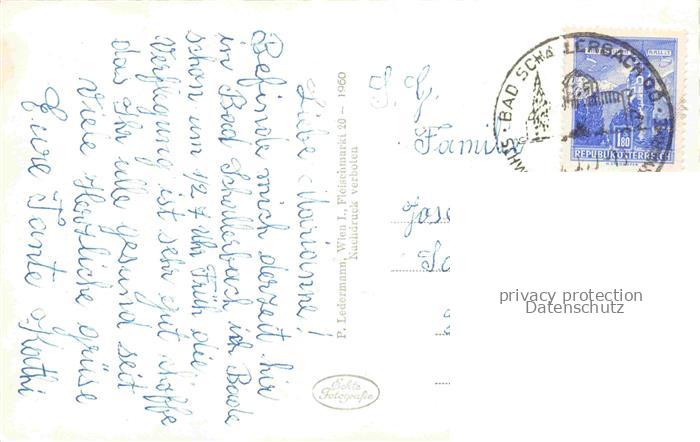 Liebe Marianne!
Befinde mich derzeit hir
in Bad Schallerbach ich Bade
schon um 1/2 7 Uhr Früh die
Verfügung ist sehr gut hoffe
das Ihr alle gesund seit
Viele Herzliche Grüse
Eure Tante Kathi
P. Ledermann, Wien I., Fleischmarkt 20 – 1960
Nachdruck verboten
Echte
Fotografie
S. G.
Famil
Jose
BAD SCHALLERBACH OÖ
1.80
REPUBLIK ÖSTERREICH
privacy protection
Datenschutz